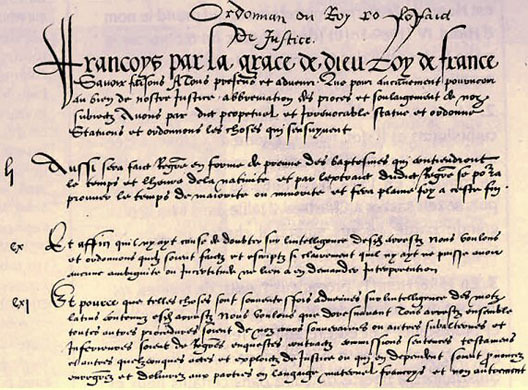 de Justice.
Francoys par la grace de dieu Roy de france
Scavoir faisons A tous presens et advenir Que pour aucunement pourveoir
au bien de nostre Justice abbreviation des proces et soulaigement de noz
subiectz Avons par dict perpetuel et irrevocable statue et ordonne
Statuons et ordonnons les choses qui sensuyvent
Aussi sera faict Regre en forme de preuve des baptesmes qui contiendront
le temps et lheure de la nativite et par lextraict dudict Regre se pora
prouver le temps de maiorite ou minorite et fera plaine foy a ceste fin
ex Et affin quil ny ayt cause de doubter sur lintelligence desd arrestz Nous voulons
et ordonnons quilz soient faictz et escriptz si clairement quil ny ayt ne puisse avoir
aucune ambiguite ou Incertitude ne lieu a en demander Interpretation
exj Et pource que telles choses sont souventesfois advenues sur lintelligence des motz
latins contenuz esd arrestz Nous voulons que doresnavant Tous arrestz ensemble
toutes autres procedures soient de noz cours souveraines ou autres subalternes et
Inferieures soient de Regres enquestes contractz commissions sentences testamens
et autres quelzconques actes et exploictz de Justice ou qui en dependent soient prononcez
enregrez et delivrez aux parties en langaige maternel francoys et non autrement